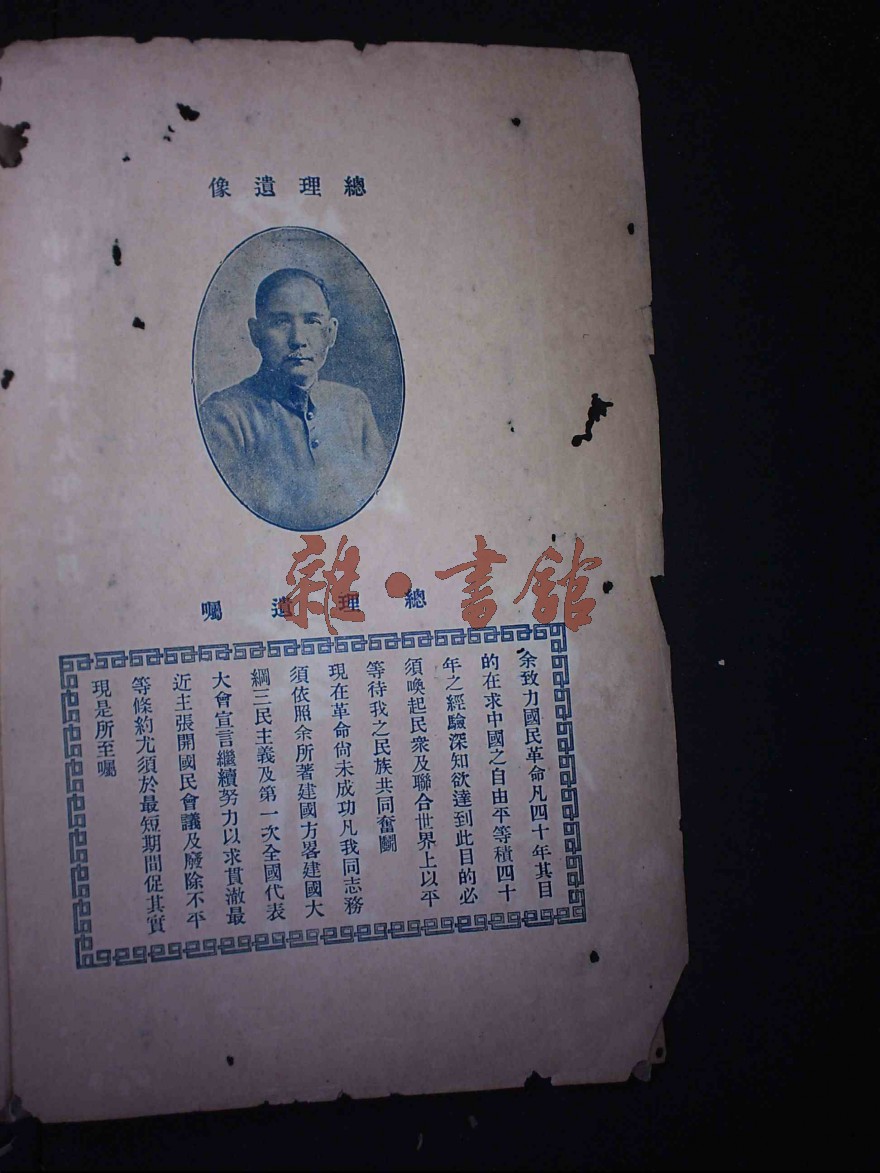 總理遺像
總理遺囑
雜·書館
余致力國民革命凡四十年其目
的在求中國之自由平等積四十
年之經驗深知欲達到此目的必
須喚起民衆及聯合世界上以平
等待我之民族共同奮鬭
現在革命尙未成功凡我同志務
須依照余所著建國方畧建國大
綱三民主義及第一次全國代表
大會宣言繼續努力以求貫澈最
近主張開國民會議及廢除不平
等條約尤須於最短期間促其實
現是所至囑